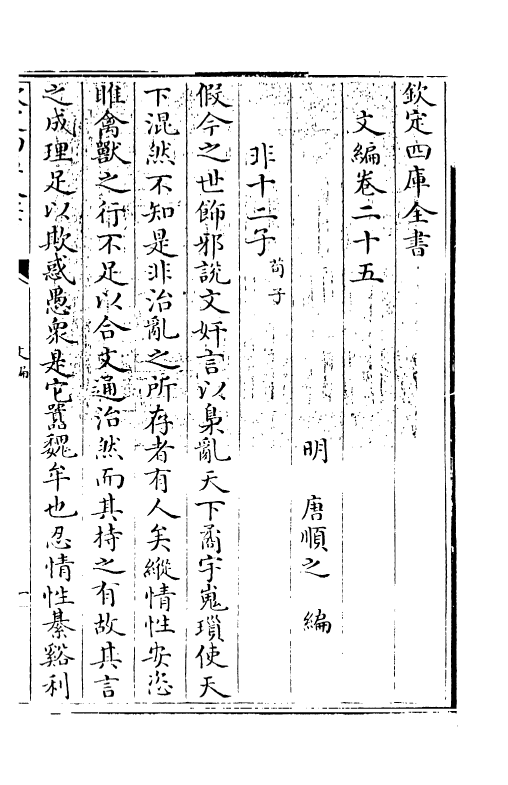 欽定四庫全書
文編卷二十五
明 唐順之 編
非十二子 荀子
假今之世飾邪說文奸言以梟亂天下矞宇嵬瑣使天
下混然不知是非治亂之所存者有人矣縱情性安恣
睢禽獸之行不足以合文通治然而其持之有故其言
之成理足以欺惑愚衆是它嚻魏牟也忍情性綦谿利